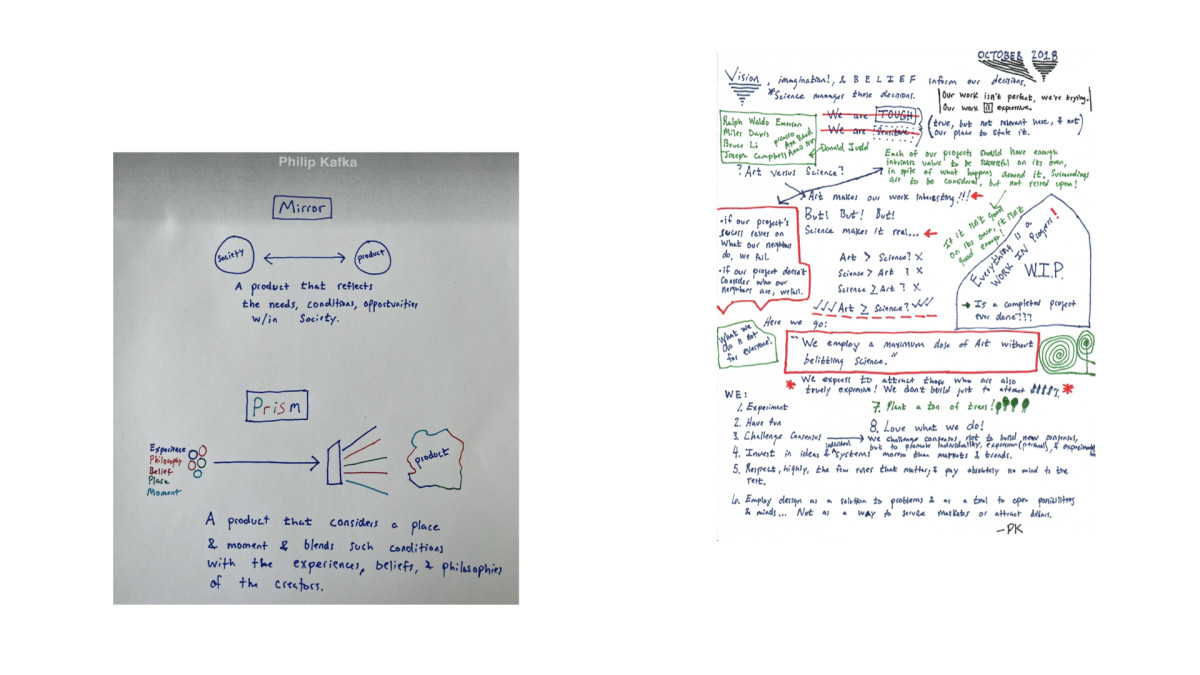 Philip Kafka
Mirror
Society
product
A product that reflects
the needs, conditions, opportunities
w/in Society.
Prism
Experience
Philosophy
Belief
Place
Moment
product
A product that considers a place
& moment & blends such conditions
with the experiences, beliefs, & philosophies
of the creators.
OCTOBER 2018
Vision, imagination!, & BELIEF inform our decisions.
*Science manages those decisions.
Our work isn't perfect, we're trying.
Our work is expensive.
(true, but not relevant here, & not)
our place to state it.
We are TOUGH
We are sensitive
Ralph Waldo Emerson
Miles Davis
Bruce Li
Joseph Campbell
picasso
Donald Judd
Each of our projects should have enough
intrinsic value to be successful on its own,
in spite of what happens around it. Surroundings
are to be considered, but not relied upon!
? Art versus Science?
Art makes our work interesting!!!
But! But! But!
Science makes it real...
If it isn't good
on its own, it isn't
good enough!
Everything is a
WORK IN Progress!
W.I.P.
Is a completed project
ever done???
• if our project's
sucess relies on
what our neighbors
do, we fail.
• if our project doesn't
consider who our
neighbors are, we fail.
Art > Science? X
Science > Art ? X
Science ≥ Art ? X
✓✓✓ Art ≥ Science? ✓✓✓
Here we go:
What we
do is not
for everyone!
"We employ a maximum dose of Art without
belittling Science."
* We express to attract those who are also
truely expressive! We don't build just to attract $$$$! *
WE:
1. Experiment
2. Have fun
3. Challenge Consensus
We challenge consensus, not to build new consensus,
but to promote individuality, expression (personal), & experimentation
4. Invest in ideas & individual systems more than markets & trends.
5. Respect, highly, the few rules that matter, & pay absolutely no mind to the
rest.
6. Employ design as a solution to problems & as a tool to open possibilities
& minds... Not as a way to service markets or attract dollars.
7. Plant a ton of trees!
8. Love what we do!
—PK